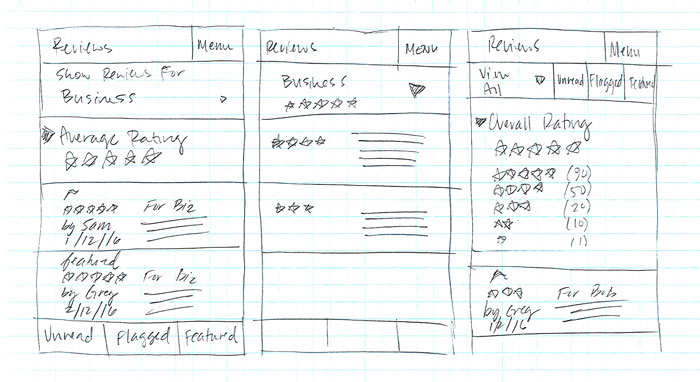 Reviews Menu
Show Reviews For
Business
Average Rating
For Biz
by Sam
1/12/16
featured
For Biz
by Greg
2/12/16
Unread Flagged Featured
Reviews Menu
Business
Reviews Menu
View All Unread Flagged Featured
Overall Rating
(90)
(50)
(20)
(10)
(1)
For Bob
by Greg